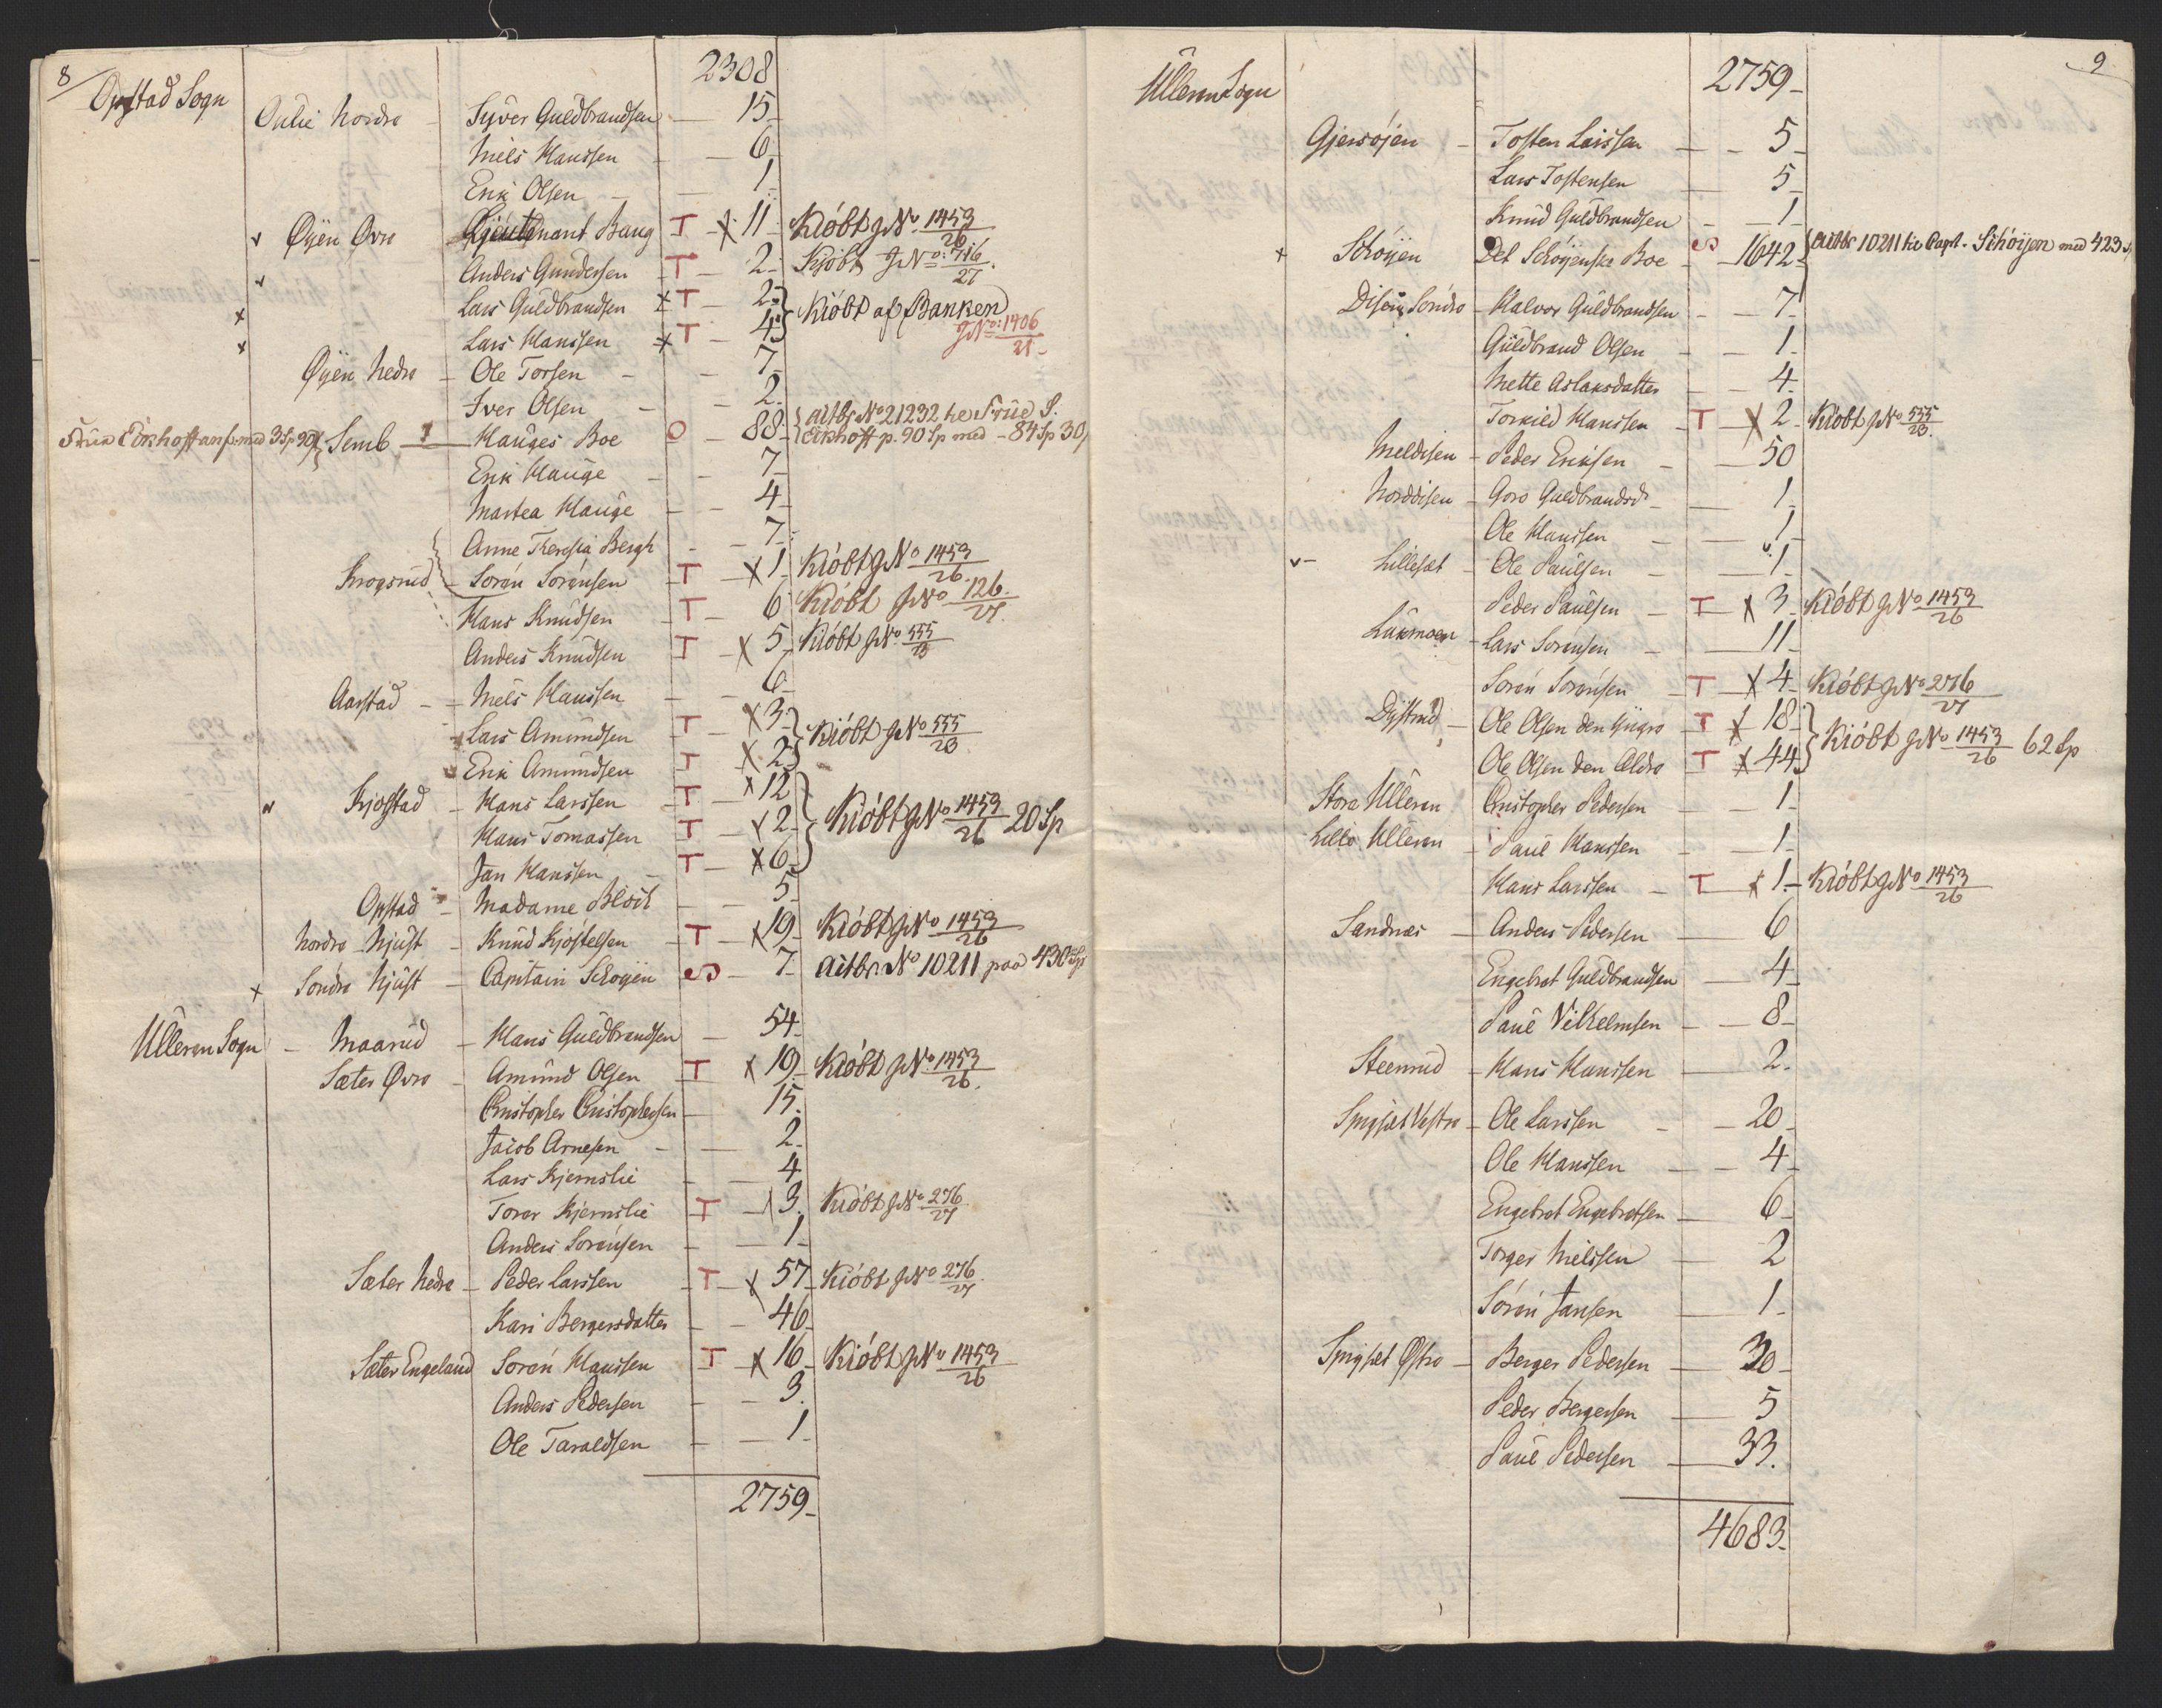 8
Opstad Sogn
2308
Oulie Nordre – Syver Guldbrandsen – 15 –
Niels Hanssen – 6 –
Erik Olsen – 1 –
v Øyen Øvre Lieutenant Baug T – x 11 Kióbt JNo 1453/26
v Anders Gundersen T – 2 – Kjóbt JNo: 716/27.
x Lars Guldbrandsen x T – 2 – } Kióbt af Banken
x Lars Hanssen x T – 4 } JNo: 1406/21 –
Øyen Nedre – Ole Torsen – 7 –
Iver Olsen – 2 –
Frue Eckhoff anf. med 3 Sp 90 } Semb 1 – Hauges Boe O – 88 – { Aitbr No 21232 til Frue S.
Eckhoff p. 90 Sp med – 84 Sp 30
Erik Hauge – 7 –
Martea Hauge – 4 –
Anne Theresia Bergh – 7 –
Krogsrud – Sorén Sorénsen T – x 1 – Kióbt JNo 1453/26.
Hans Knudsen T – 6 Kióbt JNo 126./27.
Anders Knudsen T – x 5 – Kióbt JNo 555/23
Aarstad – Niels Hanssen – 6 –
Lars Amundsen T – x 3 – } Kióbt JNo 555/23
Erik Amundsen T x 2 }
v Kjostad – Hans Larssen T – x 12 }
Hans Tomassen T – x 2 – } Kióbt JNo 1453/26 20 Sp
Jan Hanssen – T – x 6 – }
Opstad – Madame Bloch – 5 –
Nordre Njust – Knud Kjostelsen T – x 19 – Kióbt JNo 1453/26
x Sondre Njust – Capitain Schoyen S – 7 – Aitbr. No 10211 paa 430 Sp
Ulleren Sogn – Maarud – Hans Guldbrandsen – 54 –
Sæter Øvre – Amund Olsen T x 19 – Kióbt JNo 1453/26.
Christopher Christophersen – 15 –
Jacob Arnesen – 2 –
Lars Kjernslie – 4
Torer Kjernslie T – x 3. Kióbt JNo 276/27
Anders Sorénsen – 1 –
Sæter Nedre – Peder Larssen T – x 57 – Kióbt JNo 276/27.
Kari Bergersdatter – 46 –
Sæter Engeland Sorén Hanssen T – x 16 – Kióbt JNo 1453/26
Anders Pedersen – 3.
Ole Taraldsen – 1 –
2759 –
9
Ulleren Sogn
2759 –
Gjersøjen – Tosten Larssen – 5 –
Lars Tostensen – 5 –
Knud Guldbrandsen – 1 –
x Schoyen Det Schóyenske Boe S – 1642 – { Aitbr 10211 til Capt. Schóyen med 423 Sp
Disen Sondre – Halvor Guldbrandsen – 7 –
Guldbrand Olsen – 1 –
Mette Aslaksdatter – 4 –
Torkild Hanssen – T x 2 – Kióbt JNo 555/23.
Meldisen – Peder Eriksen – 50
Norddisen – Goro Guldbrandsd – 1 –
Ole Hanssen – 1 –
v – Lilleset – Ole Paulsen – 1 –
Peder Paulsen – T x 3 – Kióbt JNo 1453/26
Lukmoen – Lars Sorensen – 11 –
Sorén Sorénsen T – x 4 – Kióbt JNo 276/27
Dystrud – Ole Olsen den Yngre T – x 18 – } Kióbt JNo 1453/26 62 Sp
Ole Olsen den Ældre T – x 44 }
Store Ulleren Christopher Pedersen – 1 –
Lille Ulleren – Paul Hanssen – 1 –
Hans Larssen – T x 1 – Kióbt JNo 1453/26
Sandnes – Anders Pedersen – 6
Engebret Guldbrandsen – 4 –
Paul Vilhelmsen – 8 –
Steenrud – Hans Hanssen – 2.
Spigset Vestre – Ole Larssen – 20 –
Ole Hanssen – 4 –
Engebret Engebretsen – 6 –
Torger Nielssen – 2
Sórén Jansen – 1 –
Spigset Østre – Berger Pedersen – 30 –
Peder Bergersen – 5
Paul Pedersen – 33.
4683 –